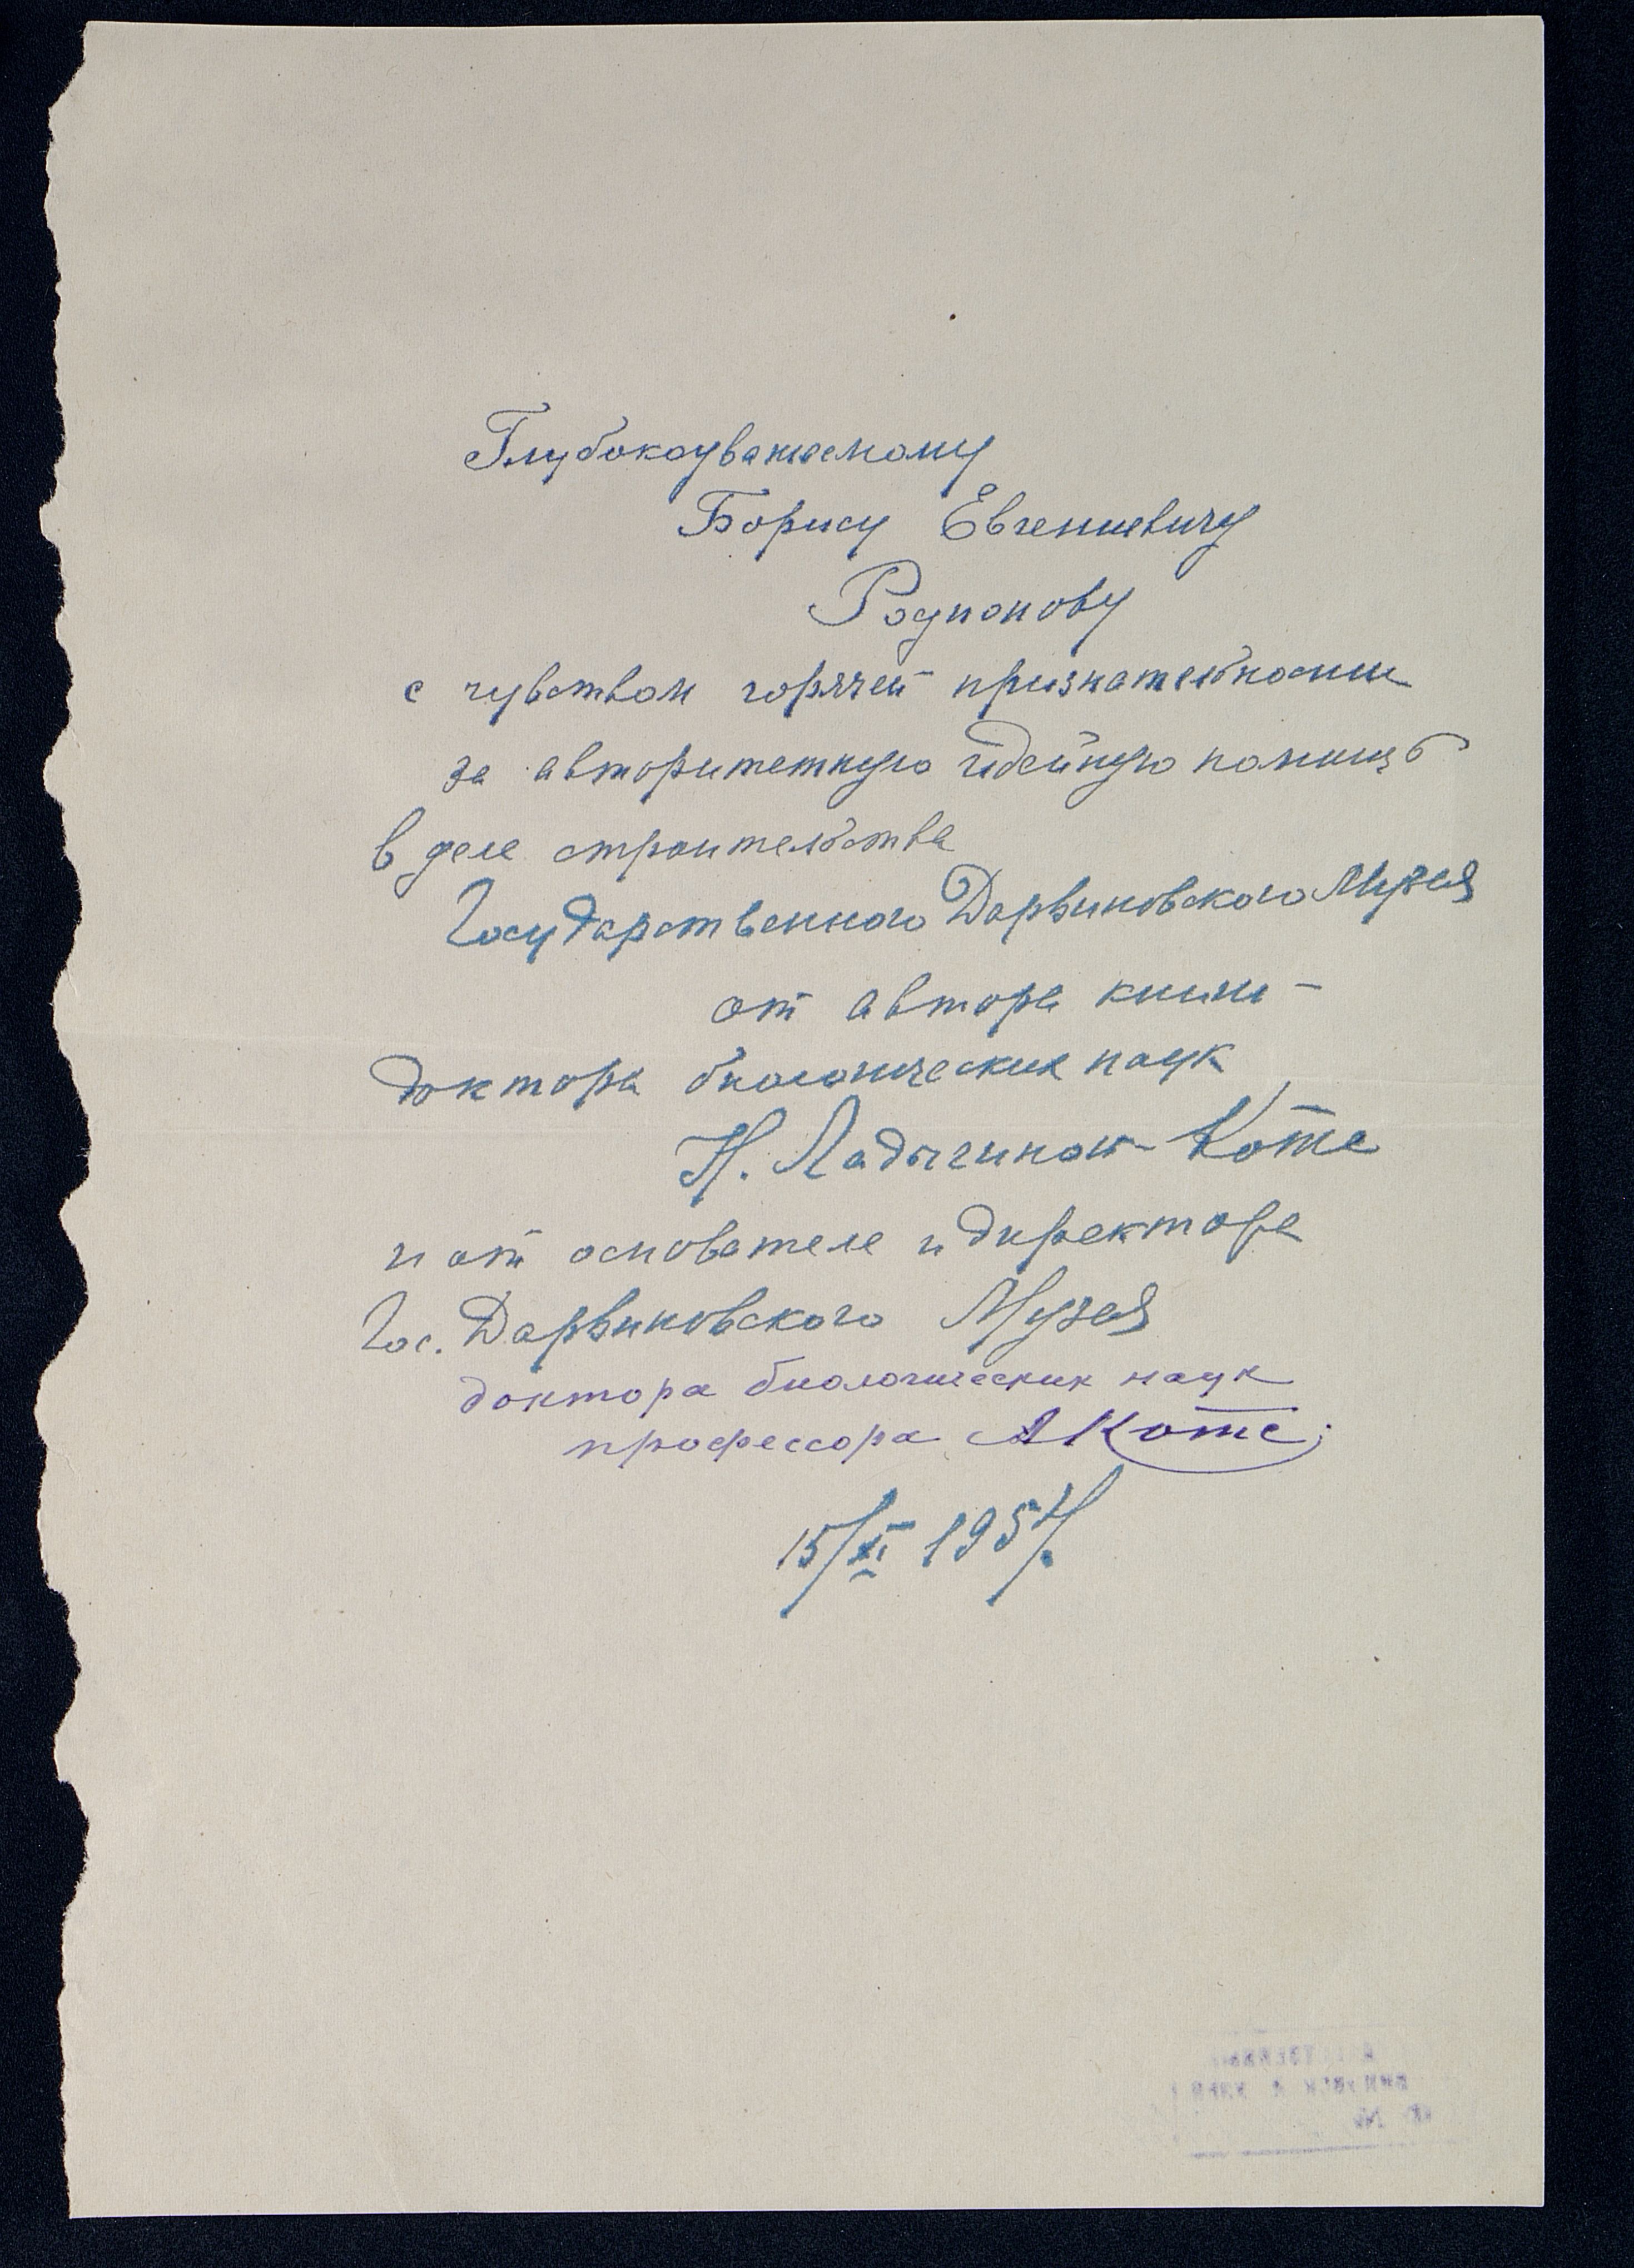 Глубокоуважаемому
Борису Евгениевичу
Родионову
с чувством горячей признательности
за авторитетную идейную помощь
в деле строительства
Государственного Дарвиновского Музея
от автора книги –
доктора биологических наук
Н. Ладыгиной-Котс
и от основателя и директора
Гос. Дарвиновского Музея
доктора биологических наук
профессора А Котс
15/XI 1957